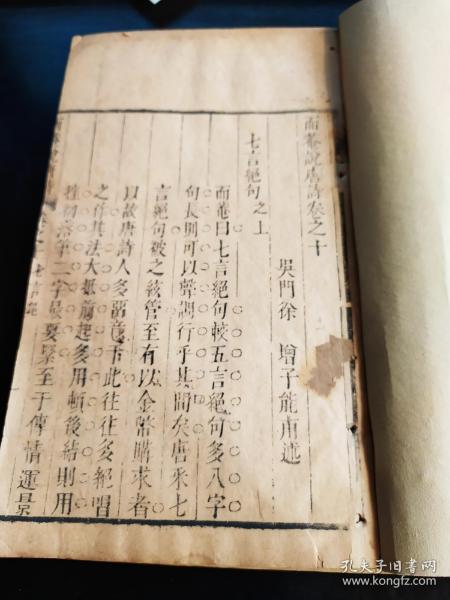 而菴說唐詩卷之十
吳門徐 增子能甫述
七言絕句之上
而菴曰七言絕句較五言絕句多八字
句長則可以聲調行乎其間矣唐來七
言絕句被之絃管至有以金幣購求者
以故唐詩人多留意于此往往多絕唱
之作其法大抵前起多用頓後結則用
落筆二字最要緊至于傳情運景
孔夫子旧书网
www.kongfz.com